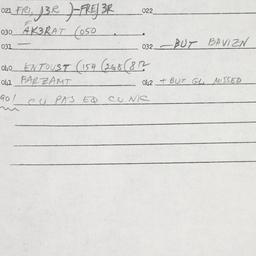 021 FRI, J3R )-FREJ3R 022
030 AK3RAT (050
031 — 032 — BUT BAVIZN
040 ENTOUST (154 (248 (8
041 BARZAMT 042 + BUT GL MISSED
CU PAJ EQ CU NK